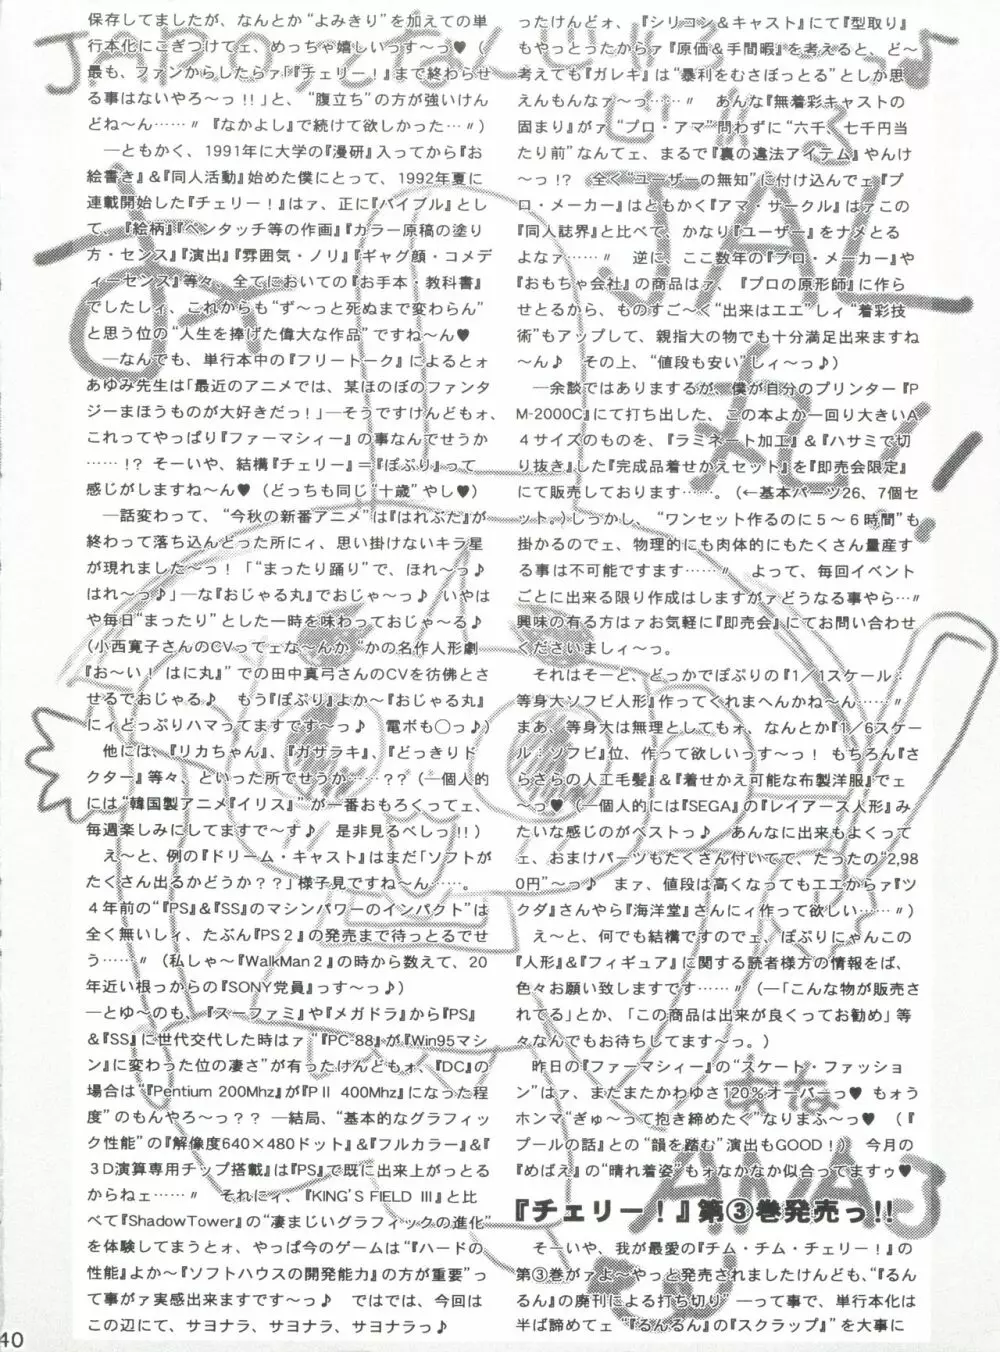 JAL
ったけどォ、『シリコン＆キャスト』にて『型取り』
もやっとったからァ『原価＆手間暇』を考えると、ど〜
考えても『ガレキ』は“暴利をむさぼっとる”としか思
えんもんなァ〜っ……〃　あんな『無着彩キャストの
固まり』がァ“プロ・アマ”問わずに“六千、七千円当
たり前”なんてェ、まるで『裏の違法アイテム』やんけ
〜っ!?　全く“ユーザーの無知”に付け込んでェ『プ
ロ・メーカー』はともかく『アマ・サークル』はァこの
『同人誌界』と比べて、かなり『ユーザー』をナメとる
よなァ〜っ……〃　逆に、ここ数年の『プロ・メーカー』や
『おもちゃ会社』の商品はァ、『プロの原形師』に作ら
せとるから、ものすご〜く“出来はエエ”しィ“着彩技
術”もアップして、親指大の物でも十分満足出来ますね
〜ん♪　その上、“値段も安い”しィ〜っ♪）
　―余談ではありまするが、僕が自分のプリンター『P
M-2000C』にて打ち出した、この本よか一回り大きいA
4サイズのものを、『ラミネート加工』＆『ハサミで切
り抜き』した『完成品着せかえセット』を『即売会限定』
にて販売しております……。（←基本パーツ26、7個セ
ット。）しっかし、“ワンセット作るのに５〜６時間”も
掛かるのでェ、物理的にも肉体的にもたくさん量産す
る事は不可能ですます……〃　よって、毎回イベント
ごとに出来る限り作成はしますがァどうなる事やら…〃
興味の有る方はァお気軽に『即売会』にてお問い合わせ
くださいましィ〜っ。
　それはそーと、どっかでぽぷりの『1／1スケール：
等身大ソフビ人形』作ってくれまへんかね〜ん……〃
まあ、等身大は無理としてもォ、なんとか『1／6スケー
ル：ソフビ』位、作って欲しいっす〜っ！ もちろん『さ
らさらの人工毛髪』＆『着せかえ可能な布製洋服』でェ
〜っ♥（―個人的には『SEGA』の『レイアース人形』み
たいな感じのがベストっ♪　あんなに出来もよくって
ェ、おまけパーツもたくさん付いてて、たったの“2,98
0円”〜っ♪　まァ、値段は高くなってもエエからァ『ツ
クダ』さんやら『海洋堂』さんにィ作って欲しい……〃）
　え〜と、何でも結構ですのでェ、ぽぷりにゃんこの
『人形』＆『フィギュア』に関する読者様方の情報をば、
色々お願い致しますです……〃（―「こんな物が販売さ
れてる」とか、「この商品は出来が良くってお勧め」等
々なんでもお待ちしてます〜っ。）
　昨日の『ファーマシィー』の“スケート・ファッショ
ン”はァ、またまたかわゆさ120％オーバーっ♥ もォう
ホンマ“ぎゅ〜って抱き締めたく”なりまふ〜っ♥（『
プールの話』との“韻を踏む”演出もGOOD！）　今月の
『めばえ』の“晴れ着姿”もォなかなか似合ってますゥ♥
『チェリー！』第③巻発売っ!!
　そーいや、我が最愛の『チム・チム・チェリー！』の
第③巻がァよ〜やっと発売されましたけんども、“『るん
るん』の廃刊による打ち切り” ―って事で、単行本化は
半ば諦めてェ “『るんるん』の『スクラップ』”を大事に
保存してましたが、なんとか“よみきり”を加えての単
行本化にこぎつけてェ、めっちゃ嬉しいっす〜っ♥（
最も、ファンからしたらァ『『チェリー！』まで終わらせ
る事はないやろ〜っ!!」と、“腹立ち”の方が強いけん
どね〜ん……〃 『なかよし』で続けて欲しかった…〃）
　―ともかく、1991年に大学の『漫研』入ってから『お
絵書き』＆『同人活動』始めた僕にとって、1992年夏に
連載開始した『チェリー！』はァ、正に『バイブル』とし
て、『絵柄』『ペンタッチ等の作画』『カラー原稿の塗り
方・センス』『演出』『雰囲気・ノリ』『ギャグ顔・コメデ
ィーセンス』等々、全てにおいての『お手本・教科書』
でしたしィ、これからも“ず〜っと死ぬまで変わらん”
と思う位の“人生を捧げた偉大な作品”ですね〜ん♥
　―なんでも、単行本中の『フリートーク』によるとォ
あゆみ先生は「最近のアニメでは、某ほのぼのファンタ
ジーまほうものが大好きだっ！」―そうですけんどもォ、
これってやっぱり『ファーマシィー』の事なんでせうか
……!? そーいや、結構『チェリー』＝『ぽぷり』って
感じがしますね〜ん♥（どっちも同じ“十歳”やし♥）
　―話変わって、“今秋の新番アニメ”は『はれぶた』が
終わって落ち込んどった所にィ、思い掛けないキラ星
が現れました〜っ！「“まったり踊り”で、ほれ〜っ♪
はれ〜っ♪」―な『おじゃる丸』でおじゃ〜っ♪ いやは
や毎日“まったり”とした一時を味わっておじゃ〜る♪
（小西寛子さんのCVってェな〜んか“かの名作人形劇
『お〜い！ はに丸』”での田中真弓さんのCVを彷彿とさ
せるでおじゃる♪　もう『ぽぷり』よか〜『おじゃる丸』
にィどっぷりハマってますです〜っ♪　電ポも○っ♪）
　他には、『リカちゃん』、『ガサラキ』、『どっきりド
クター』等々、といった所でせうか……??（―個人的
には“韓国製アニメ『イリス』”が一番おもろくってェ、
毎週楽しみにしてますで〜す♪　是非見るべしっ!!）
　え〜と、例の『ドリーム・キャスト』はまだ「ソフトが
たくさん出るかどうか??」様子見ですね〜ん……。
４年前の“『PS』＆『SS』のマシンパワーのインパクト”は
全く無いしィ、たぶん『PS２』の発売まで待っとるでせ
う……〃（私しゃ〜『WalkMan２』の時から数えて、20
年近い根っからの『SONY党員』っす〜っ♪）
―とゆ〜のも、『スーファミ』や『メガドラ』から『PS』
＆『SS』に世代交代した時はァ“『PC-88』が『Win95マシ
ン』に変わった位の凄さ”が有ったけんどもォ、『DC』の
場合は“『Pentium 200Mhz』が『PⅡ 400Mhz』になった程
度”のもんやろ〜っ??　―結局、“基本的なグラフィッ
ク性能”の『解像度640×480ドット』＆『フルカラー』＆『
３D演算専用チップ搭載』は『PS』で既に出来上がっとる
からねェ……〃　それにィ、『KING'S FIELD Ⅲ』と比
べて『ShadowTower』の“凄まじいグラフィックの進化”
を体験してまうとォ、やっぱ今のゲームは“『ハードの
性能』よか〜『ソフトハウスの開発能力』の方が重要”っ
て事がァ実感出来ますです〜っ♪　ではでは、今回は
この辺にて、サヨナラ、サヨナラ、サヨナラっ♪
ANA
40